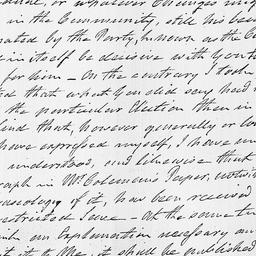 or whatever Changes might
in the Community, still his bea
nated by the Party, known as the
in itself be decisive with You
for him — On the contrary I took
that what You did say had
the particular Election then in
find that, however generally or
have expressed myself, I have un
understood, and likewise think
graph in Mr. Coleman's Paper,
of it, has been received
restricted Sense — At the same ti
an Explanation necessary an
it to Me, it shall be published